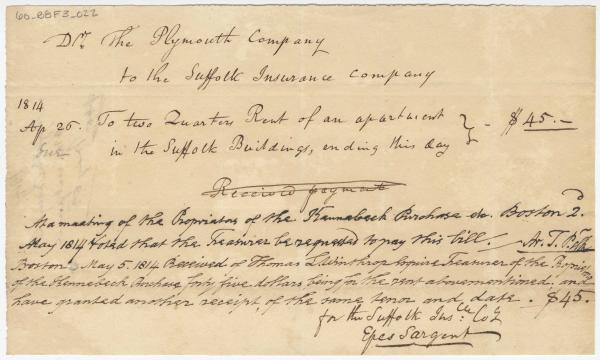 60_BBF3_022
Dr. The Plymouth Company
to the Suffolk Insurance Company
1814
Ap 26. To two Quarters Rent of an apartment } - $45.-
in the Suffolk Buildings, ending this day
Received payment
At a meeting of the Proprietors of the Kennebeck Purchase &c. Boston 2d.
May 1814 Voted that the Treasurer be requested to pay this bill. At. T.
Boston May 5. 1814 Received of Thomas L Winthrop Esquire Treasurer of the Proprietors
of the Kennebeck Purchase forty five dollars, being for the rent abovementioned. and
have granted another receipt of the same tenor and date. $45.
for the Suffolk Insce. Coy
Epes Sargent